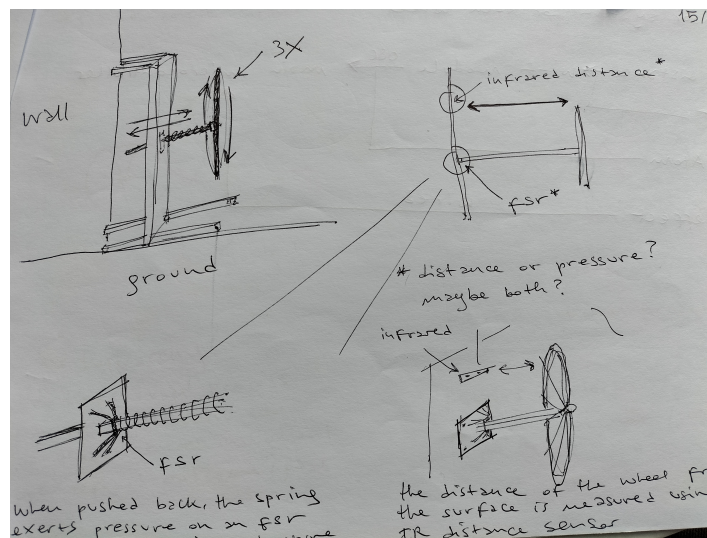 15/
3X
wall
infrared distance*
fsr*
ground
* distance or pressure?
maybe both?
infrared
fsr
when pushed back, the spring
exerts pressure on an fsr
the distance of the wheel fr
the surface is measured usin
IR distance sensor